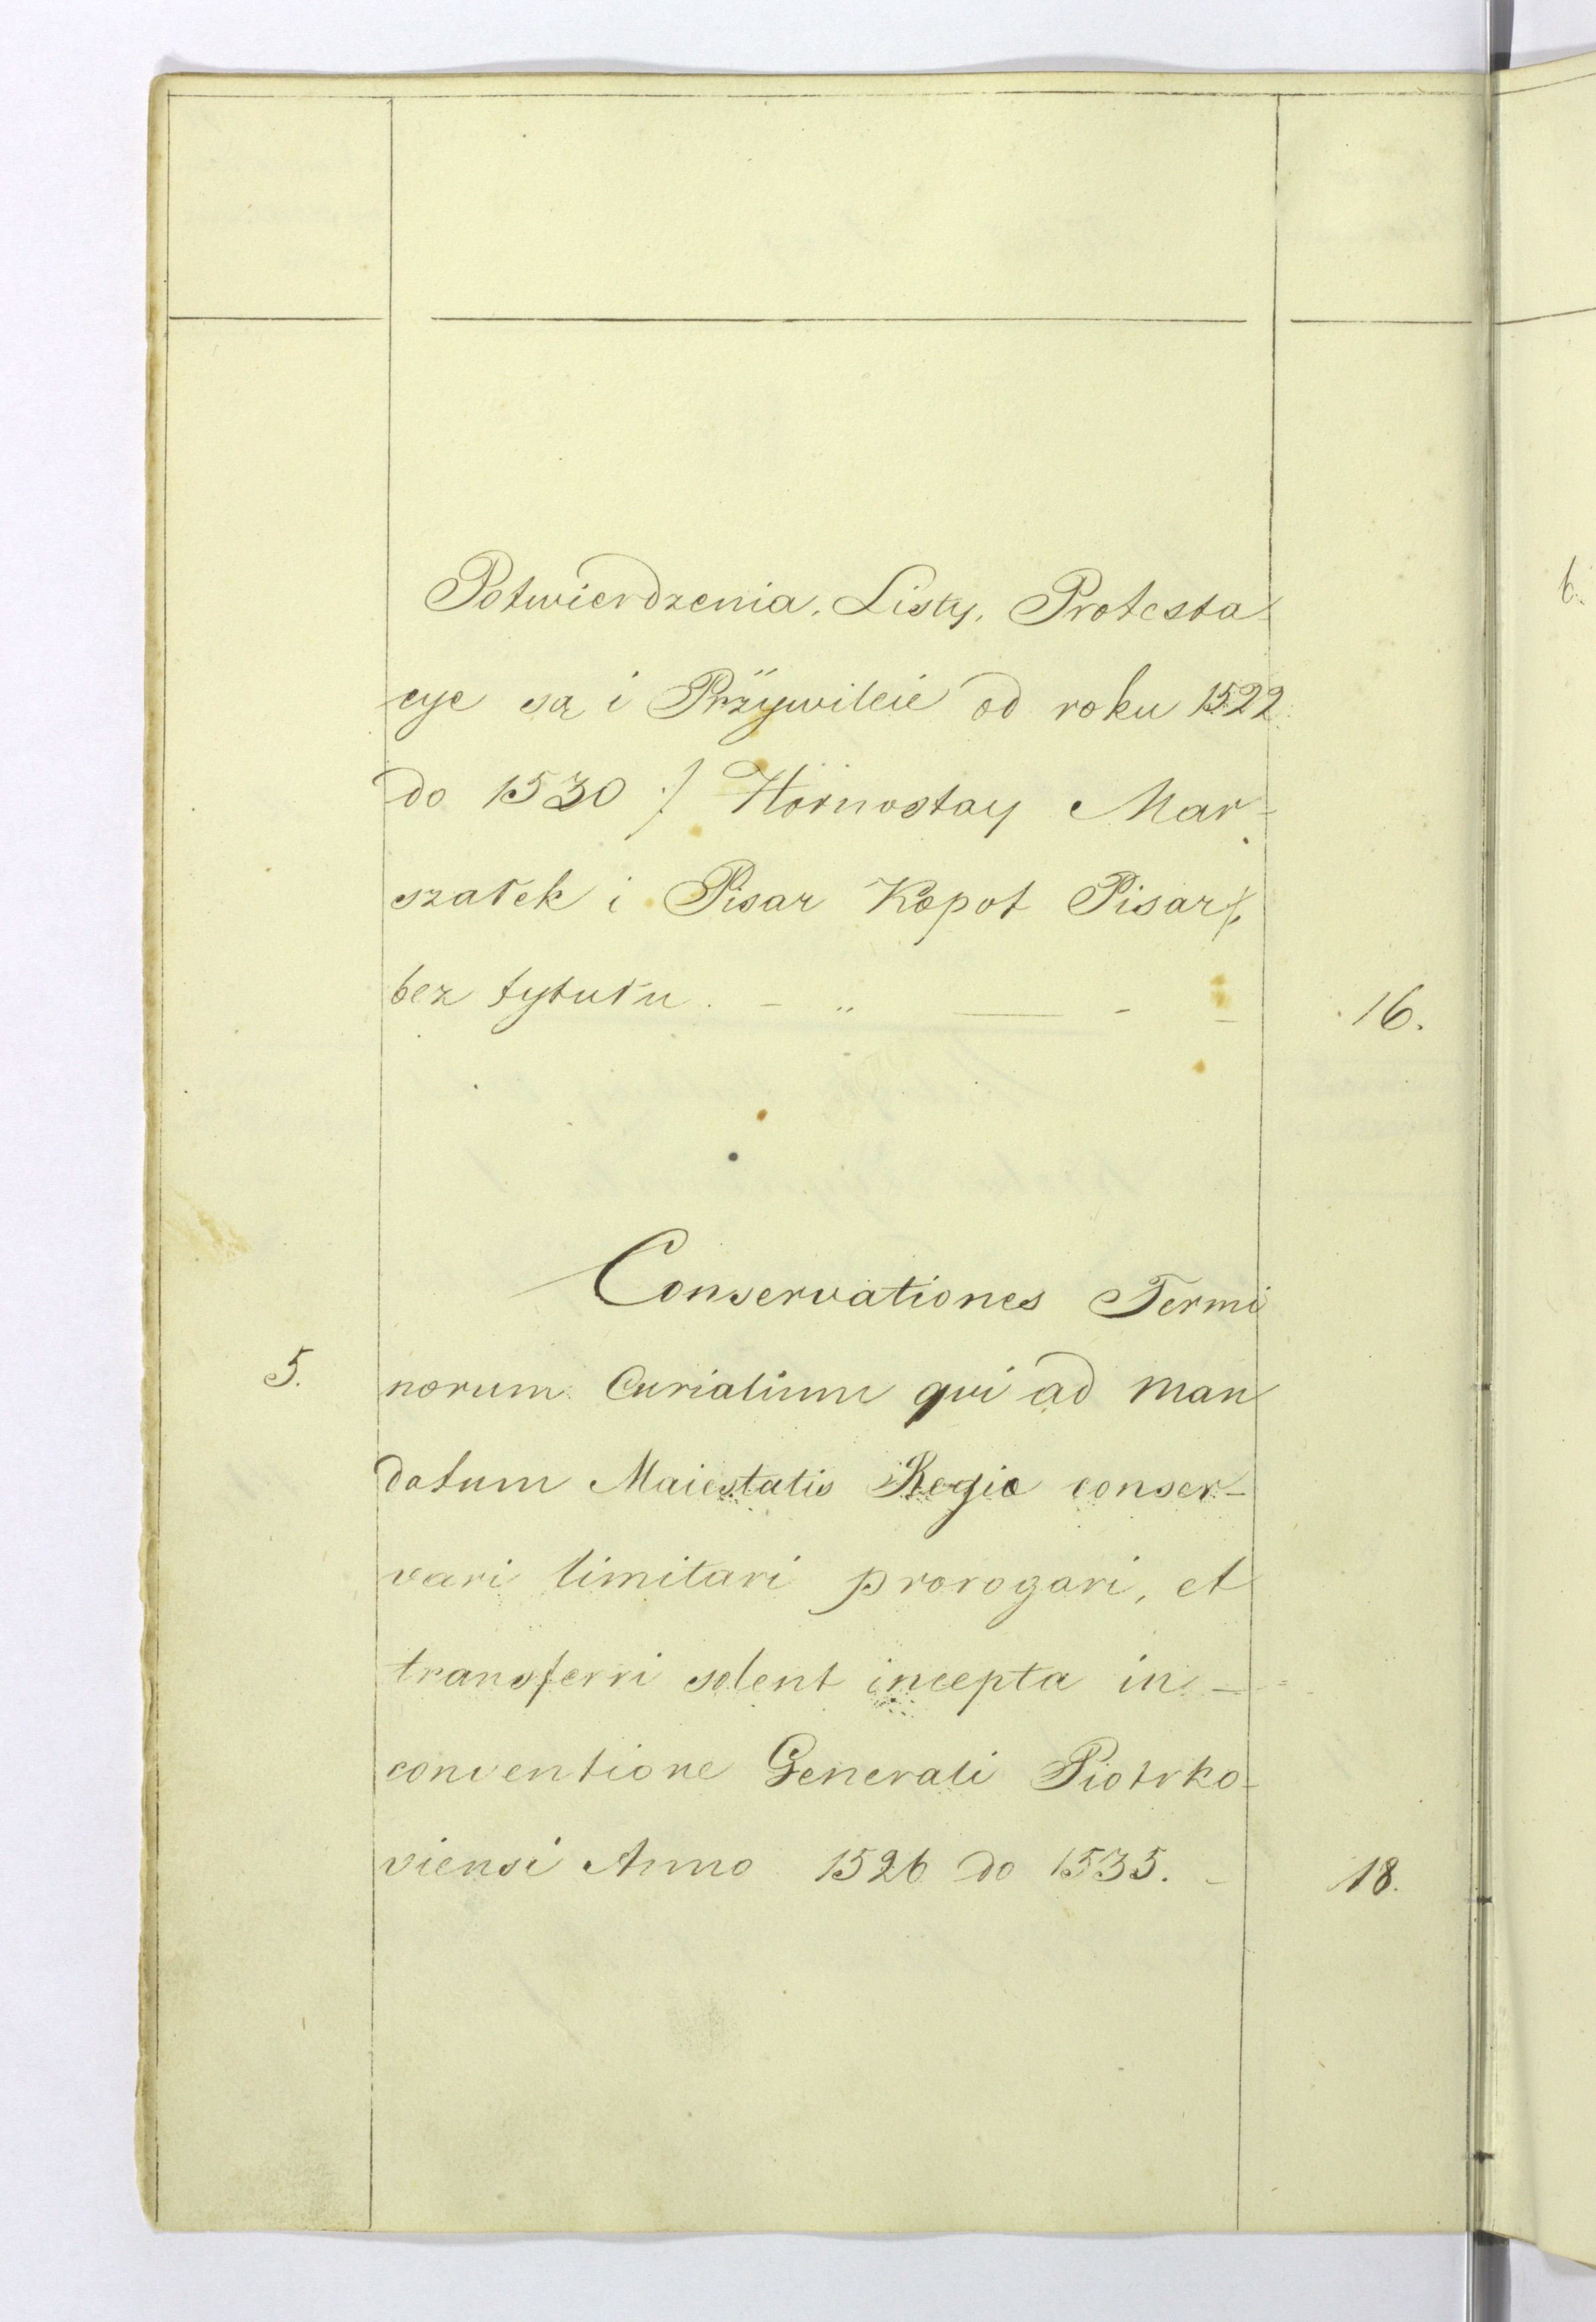 Potwierdzenia, Listy, Protesta-
cye są i Przywileie od roku 1522
do 1530 ⁒ Hornostay Mar-
szałek i Pisar Kopot Pisar ⁒
bez tytułu . - „ — - - 16.
Conservationes Termi
5. norum Curialium qui ad man
datum Maiestatis Regie conser-
vari limitari prorogari, et
transferri solent incepta in -
conventione Generali Piotrko-
viensi Anno 1526 do 1535. - 18.
6.